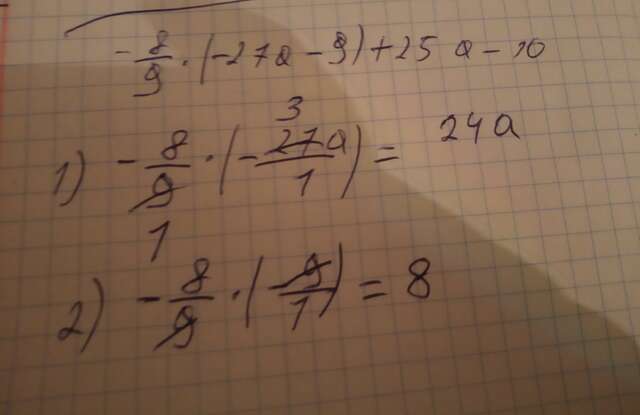 -8/9 · (-27a - 9) + 25a - 10
3
1) -8/9 · (-27a/1) = 24a
1
2) -8/9 · (-9/1) = 8